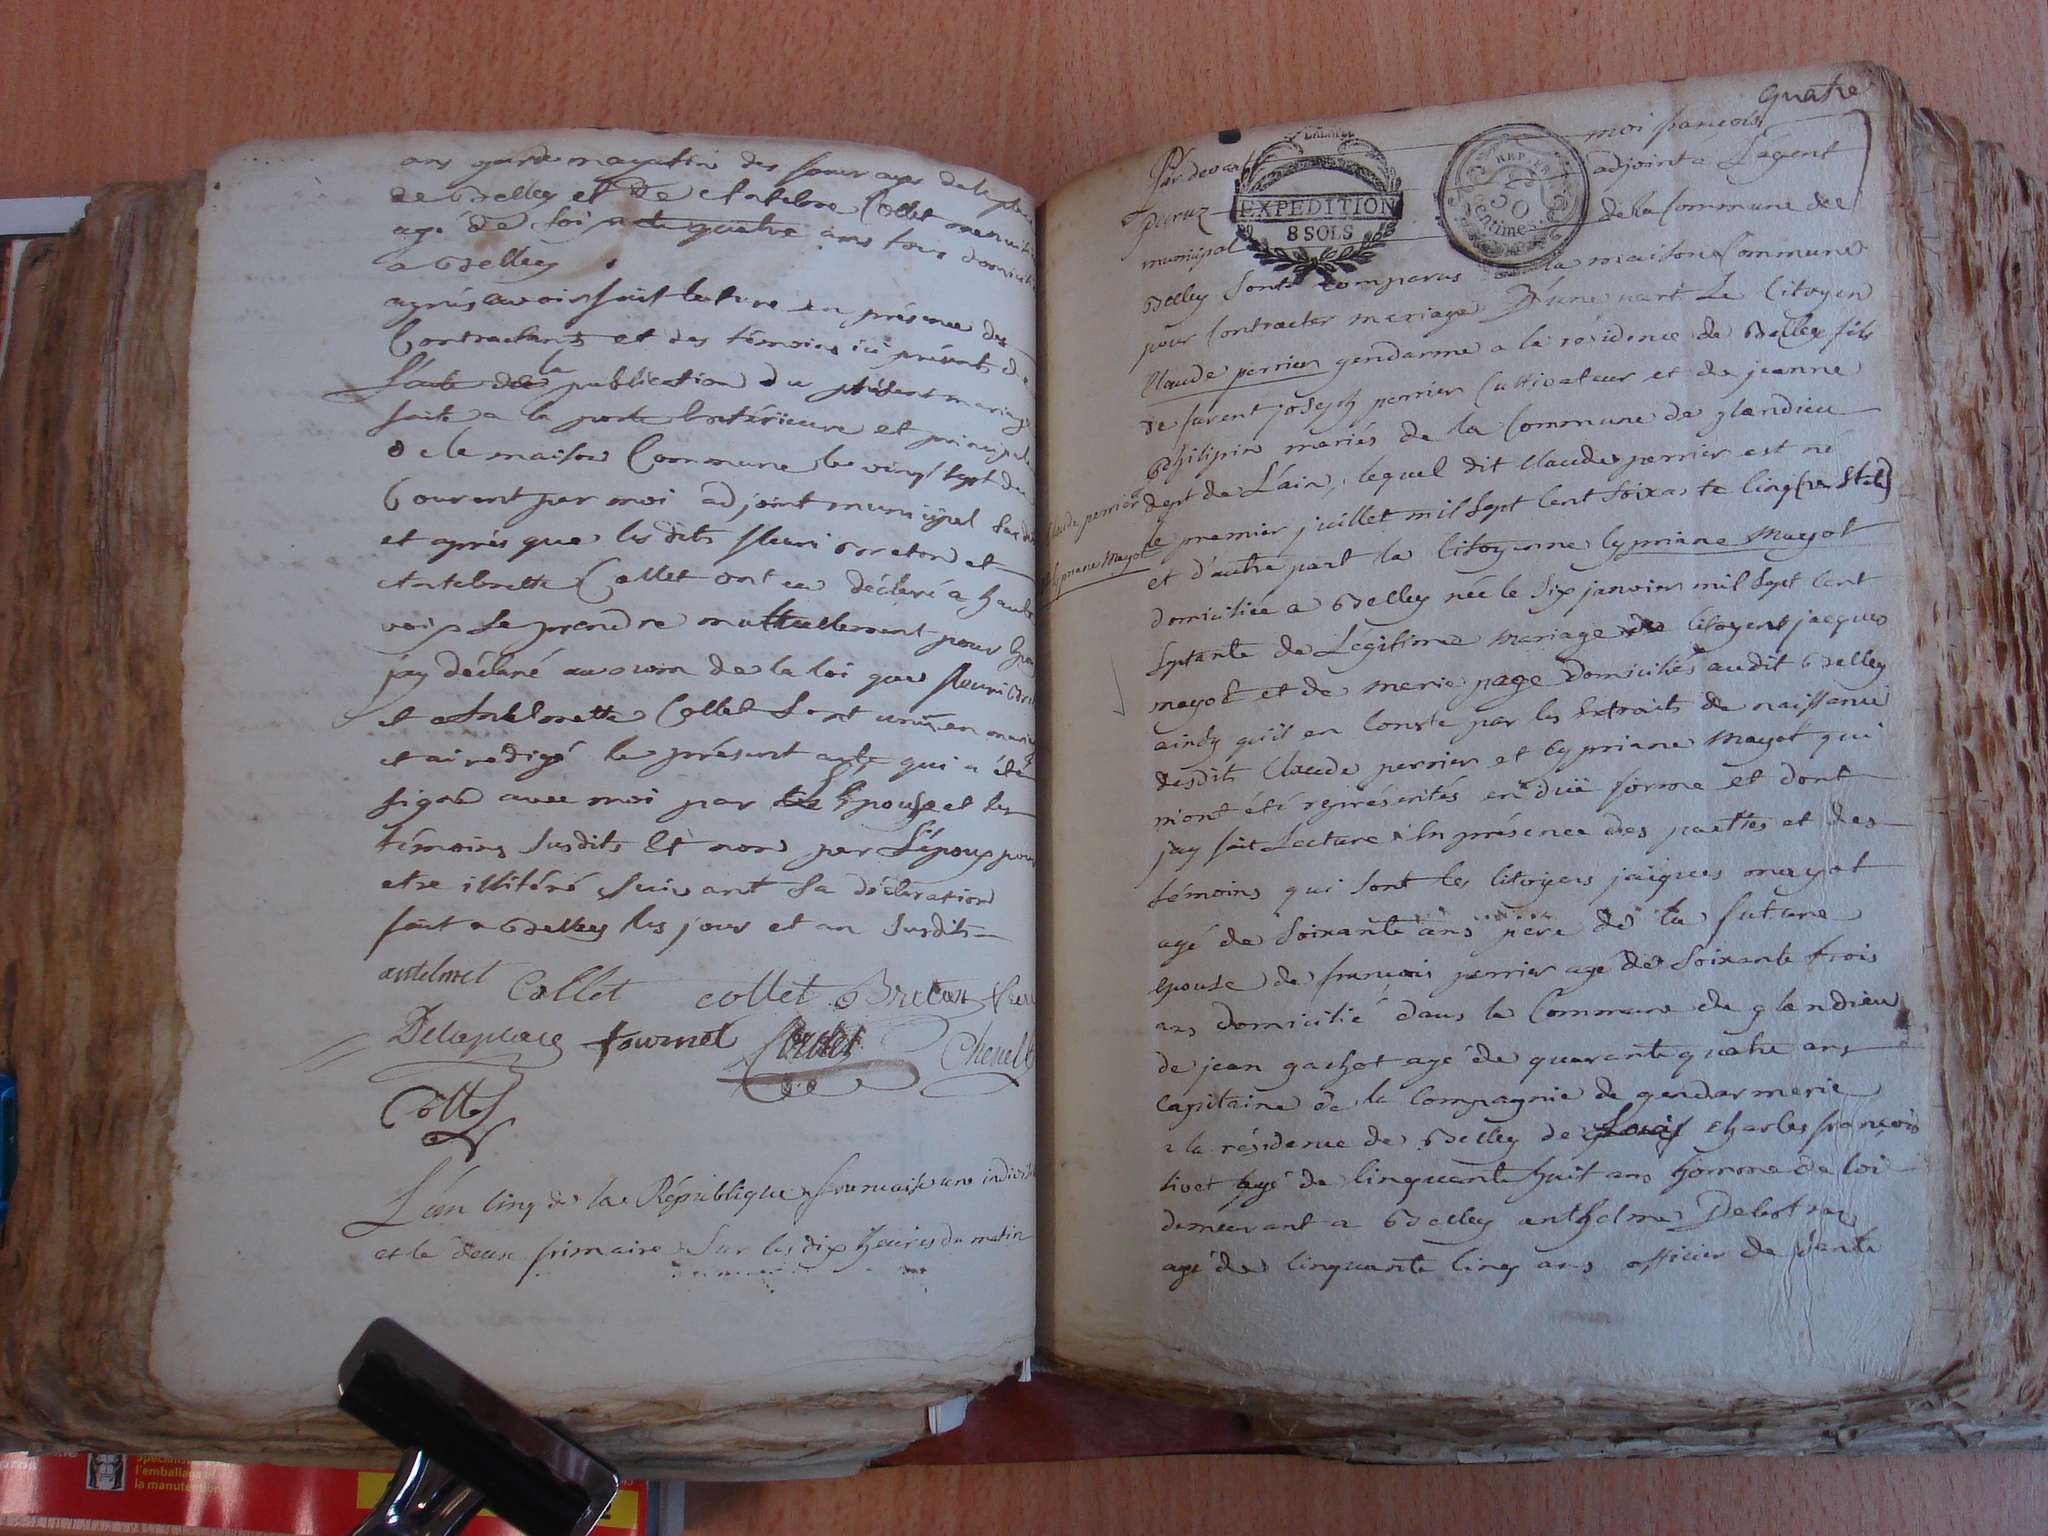 ans garde magasin des fourages de la
de Belley et de Antelme Collet
agé de soi quatre ans tous
a Belley
apres avoir fait lecture en présence des
Contractants et des témoins ici présents de
l'acte de la publication du présent mariage
faite a la porte Extérieure et principale
de la maison Commune le vingt sept du
Courant par moi adjoint municipal susdit
et après que les dits fleuri Breton et
Antelmette Collet ont eu déclaré a haute
voix se prendre mutuellement pour
j'ay déclaré au nom de la loi que fleuri
et Antelmette Collet sont unis en
et ai redigé le présent acte qui a été
signé avec moi par les Epouse et les
témoins susdits et non par l'époux pour
etre illitéré suivant sa déclaration
fait a Belley les jour et an susdits
antelmet Collet collet Breton
Delaplace fournel Chenel
Collet
L'an cinq de la République française une indivisible
et le deux frimaire sur les dix heures du matin
quatre
Par devant moi françois
adjoint a L'agent
EXPEDITION
8 SOLS
REP. FR
50
centimes
municipal de la Commune de
Belley sont comparus la maison Commune
pour contracter mariage D'une part Le Citoyen
Claude perrier gendarme a la résidence de Belley fils
de furent joseph perrier Cultivateur et de jeanne
philipin mariés de la Commune de glandieu
dept de L'ain, lequel dit Claude perrier est né
Claude perrier
le premier juillet mil sept cent soixante cinq
Cypriane Mayot
et d'autre part la Citoyenne Cypriane Mayot
domiciliée a Belley née le six janvier mil sept cent
septante de Légitime mariage de citoyens jacques
mayot et de marie page domiciliés audit Belley
aindy qu'il en conste par les Extraits de naissance
desdits Claude perrier et Cypriane Mayot qui
m'ont été représentés en düe forme et dont
j'ay fait Lecture En présence des parties et des
témoins qui sont les citoyens jacques mayot
agé de soixante ans pere de la future
epouse de françois perrier agé de soixante trois
ans domicilié dans la Commune de glandieu
de jean gachot agé de quarante quatre ans
Capitaine de la Compagnie de gendarmerie
a la résidence de Belley de Louis Charles françois
tivet agé de Cinquante huit ans homme de loi
demeurant a Belley anthelme
agé de Cinquante Cinq ans officier de santé